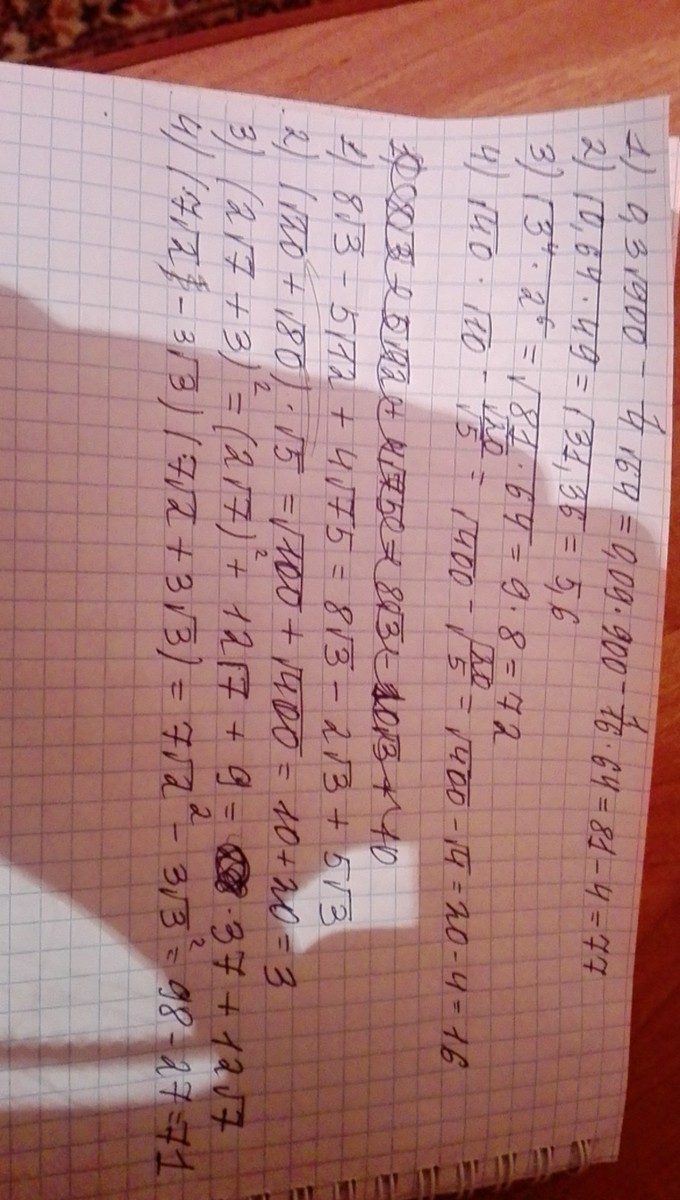 1) 0,3√900 - 1/4 √64 = 0,09·900 - 1/16·64 = 81 - 4 = 77
2) √0,64·49 = √31,36 = 5,6
3) √3⁴·2⁶ = √81·64 = 9·8 = 72
4) √40·√10 - √20/√5 = √400 - √20/5 = √400 - √4 = 20 - 4 = 16
1) 8√3 - 5√12 + 4√75 = 8√3 - 2√3 + 5√3
2) (√20 + √80)·√5 = √100 + √400 = 10 + 20 = 3
3) (2√7 + 3)² = (2√7)² + 12√7 + 9 = 37 + 12√7
4) (7√2 - 3√3)(7√2 + 3√3) = 7√2² - 3√3² = 98 - 27 = 71